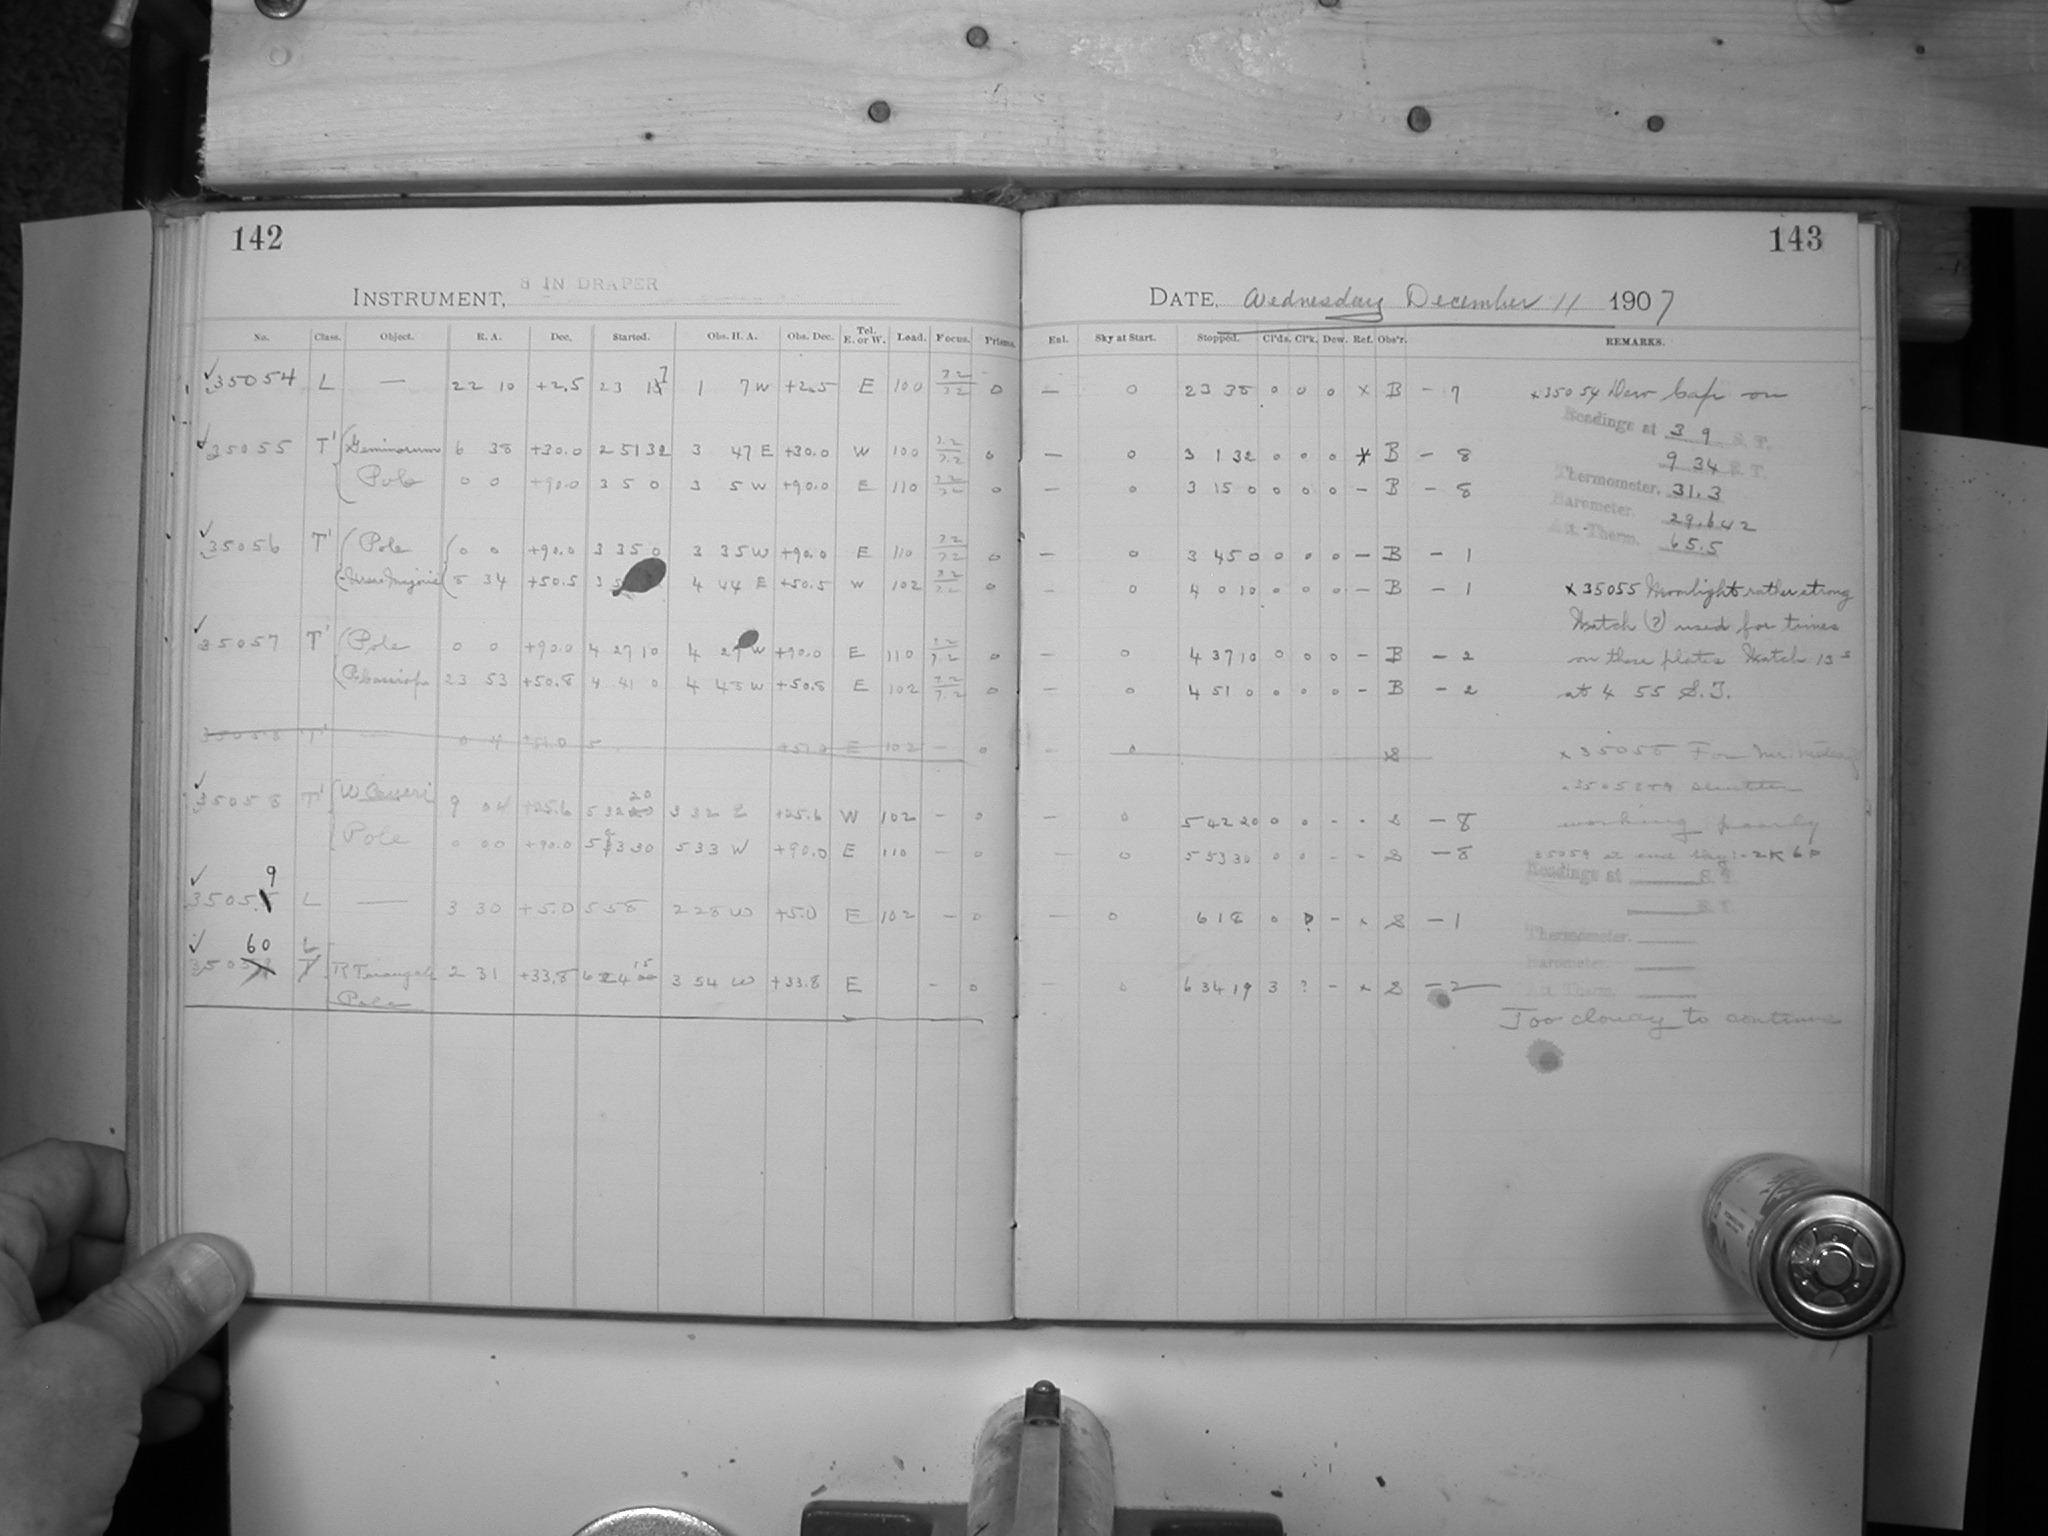 142
8 IN DRAPER
INSTRUMENT,
No. Class. Object. R. A. Dec. Started. Obs. H. A. Obs. Dec. Tel. E. or W. Load. Focus. Prisms.
35054 L — 22 10 +2.5 23 17 1 7 W +2.5 E 100 0
35055 T' Geminorum 6 38 +30.0 2 51 32 3 47 E +30.0 W 100 0
Pole 0 0 +90.0 3 5 0 3 5 W +90.0 E 110 0
35056 T' Pole 0 0 +90.0 3 35 0 3 35 W +90.0 E 110 0
Ursae Majoris 8 34 +50.5 3 4 44 E +50.5 W 102 0
35057 T' Pole 0 0 +90.0 4 27 10 4 27 W +90.0 E 110 0
23 53 +50.8 4 41 0 4 48 W +50.8 E 102 0
35058 T' — 0 4 +51.0 5 +51.0 E 102 – 0
35058 T' W Canceri 9 04 +25.6 5 32 20 3 32 E +25.6 W 102 – 0
Pole 0 00 +90.0 5 43 30 5 33 W +90.0 E 110 – 0
35059 L — 3 30 +5.0 5 58 2 28 W +5.0 E 102 – 0
60 L
R Triangoli 2 31 +33.8 6 24 15 3 54 W +33.8 E – 0
Pole
143
DATE, Wednesday December 11 1907
Enl. Sky at Start. Stopped. Cl'ds. Cl'k. Dew. Ref. Obs'r. REMARKS.
— 0 23 38 0 0 0 x B – 7 x35054 Dew Cap on
Readings at 3 9 S. T.
— 0 3 1 32 0 0 0 x B – 8 9 34 E. T.
— 0 3 15 0 0 0 0 – B – 8 Thermometer. 31.3
Barometer. 29.642
— 0 3 45 0 0 0 0 – B – 1 Att. Therm. 65.5
— 0 4 0 10 0 0 0 – B – 1 x 35055 Moonlight rather strong
Watch (?) used for times
— 0 4 37 10 0 0 0 – B – 2 on these plates Watch 13 s
— 0 4 51 0 0 0 0 – B – 2 at 4 55 S.T.
– 0 S x 35058 For Mr.
shutter
— 0 5 42 20 0 0 – - S – 8 working poorly
— 0 5 53 30 0 0 – - S – 8 35059 at end sky
Readings at S. T.
E. T.
— 0 6 18 0 ? – x S – 1
Thermometer.
Barometer.
– 0 6 34 19 3 ? – x S – 2 Att. Therm.
Too cloudy to continue